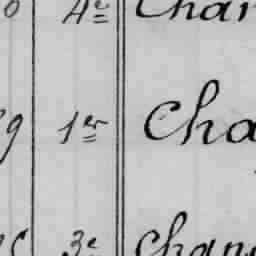 4e Char
9 1er Cha
3e Chan